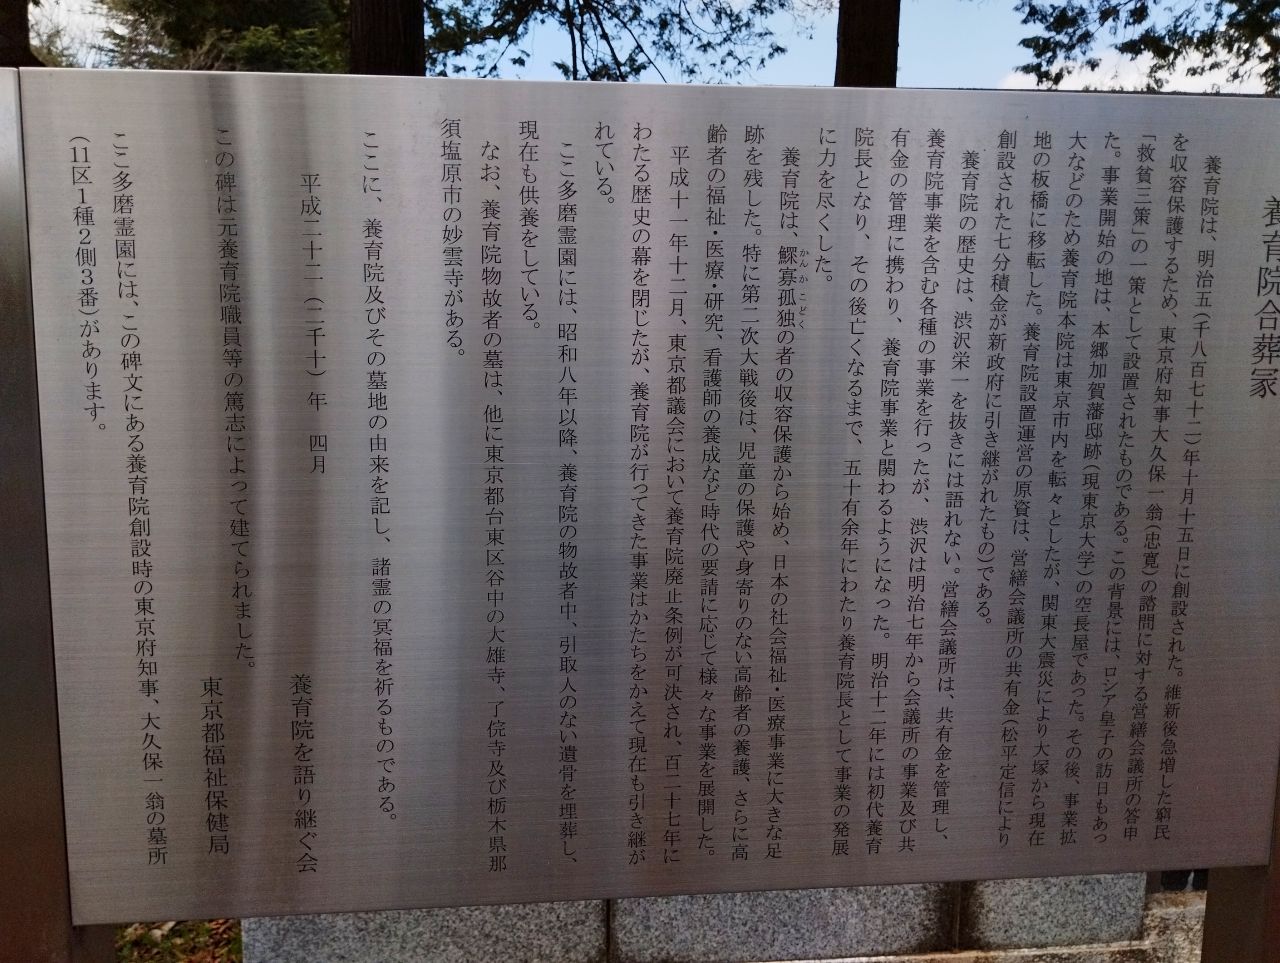 養育院合葬冢
養育院は、明治五(千八百七十二)年十月十五日に創設された。維新後急増した窮民
を収容保護するため、東京府知事大久保一翁(忠寛)の諮問に対する営繕会議所の答申
「救貧三策」の一策として設置されたものである。この背景には、ロシア皇子の訪日もあっ
た。事業開始の地は、本郷加賀藩邸跡(現東京大学)の空長屋であった。その後、事業拡
大などのため養育院本院は東京市内を転々としたが、関東大震災により大塚から現在
地の板橋に移転した。養育院設置運営の原資は、営繕会議所の共有金(松平定信により
創設された七分積金が新政府に引き継がれたもの)である。
養育院の歴史は、渋沢栄一を抜きには語れない。営繕会議所は、共有金を管理し、
養育院事業を含む各種の事業を行ったが、渋沢は明治七年から会議所の事業及び共
有金の管理に携わり、養育院事業と関わるようになった。明治十二年には初代養育
院長となり、その後亡くなるまで、五十有余年にわたり養育院長として事業の発展
に力を尽くした。
養育院は、鰥寡孤独の者の収容保護から始め、日本の社会福祉・医療事業に大きな足
かんかこどく
跡を残した。特に第二次大戦後は、児童の保護や身寄りのない高齢者の養護、さらに高
齢者の福祉・医療・研究、看護師の養成など時代の要請に応じて様々な事業を展開した。
平成十一年十二月、東京都議会において養育院廃止条例が可決され、百二十七年に
わたる歴史の幕を閉じたが、養育院が行ってきた事業はかたちをかえて現在も引き継が
れている。
ここ多磨霊園には、昭和八年以降、養育院の物故者中、引取人のない遺骨を埋葬し、
現在も供養をしている。
なお、養育院物故者の墓は、他に東京都台東区谷中の大雄寺、了俒寺及び栃木県那
須塩原市の妙雲寺がある。
ここに、養育院及びその墓地の由来を記し、諸霊の冥福を祈るものである。
平成二十二(二千十)年 四月
養育院を語り継ぐ会
東京都福祉保健局
この碑は元養育院職員等の篤志によって建てられました。
ここ多磨霊園には、この碑文にある養育院創設時の東京府知事、大久保一翁の墓所
(11区1種2側3番)があります。